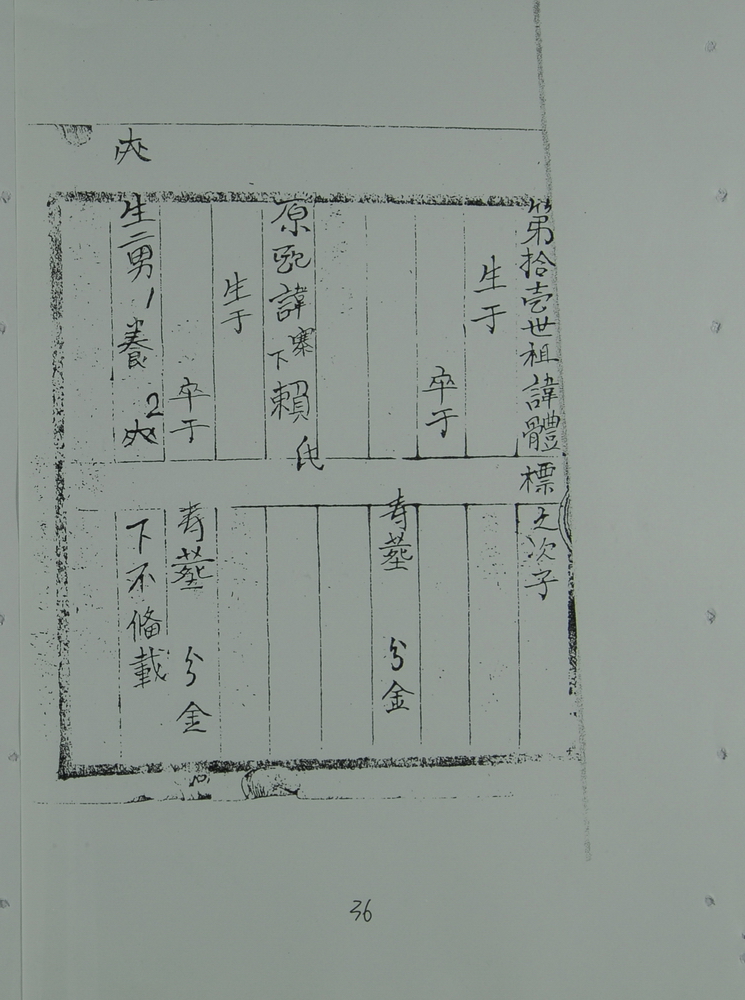 第拾壹世祖諱體標之次子
生于
卒于
寿墓 分金
原配諱寨下賴氏
生于
卒于
寿墓 分金
生二男 1 養 2
下不俻載
36